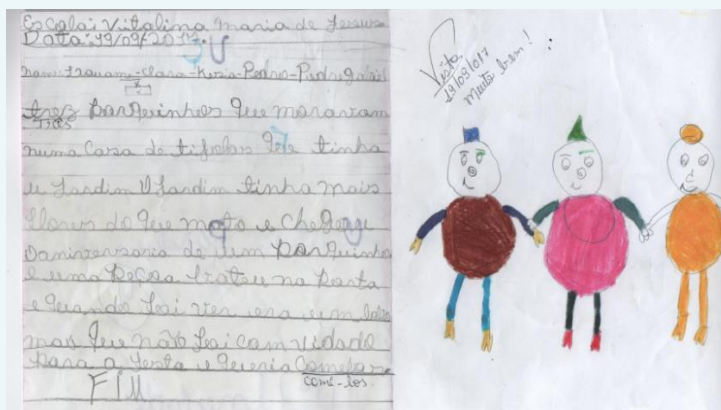 Escola: Vitalina Maria de Jesus
Data: 19/09/2017.
Clara-Kezia-Pedro-Pedro Gabriel
tres porquinhos que moravam
Três
numa casa de tijolos que tinha
u Jardim O Jardim tinha mais
flores do que mato e chegou
o aniversario de um porquinho
e uma pessoa bateu na porta
e quando foi ver era um lobo
mas que não foi comvidado
para a festa e queria
comê-los.
FIM
Visto
19/09/017
Muito bem!